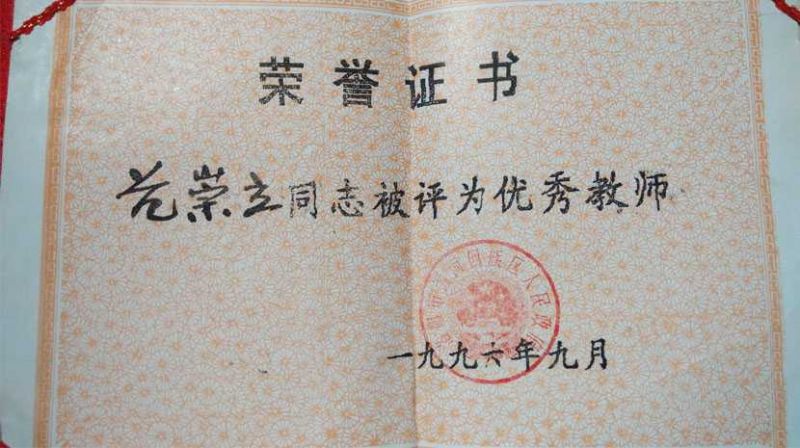 荣誉证书
崇立同志被评为优秀教师
回族区人民政府
一九九六年九月